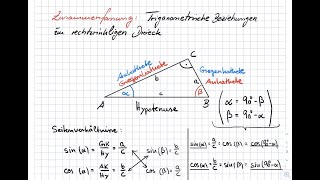 Zusammenfassung: Trigonometrische Beziehungen
im rechtwinkligen Dreieck
C
Ankathete
Gegenkathete
b
a
Gegenkathete
Ankathete
α
β
A
c
B
Hypotenuse
( α = 90° - β )
( β = 90° - α )
Seitenverhältnisse:
sin(α) = GK/HY = a/c
sin(β) = b/c
cos(α) = AK/HY = b/c
cos(β) = a/c
sin(α) = a/c = cos(β) = cos(90°-α)
cos(α) = b/c = sin(β) = sin(90°-α)